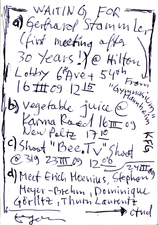 WAITING FOR
a) Gerhard Stammler
(first meeting after
30 Years!) @ Hilton
Lobby 6 Ave + 54th
16 III 09 12 15
From "Gymnasium
KFG
b) Vegetable juice @
Karma Road 16 III 09
New Paltz 17 10
c) Shoot "Bee, TV" Shoot
@ 319 23 III 09 12 06
24 III 09
d) Meet Erich Moenius, Stephan
Meyer-Brehm, Dominique
Görlitz, Thurn Laurentz
ctnd